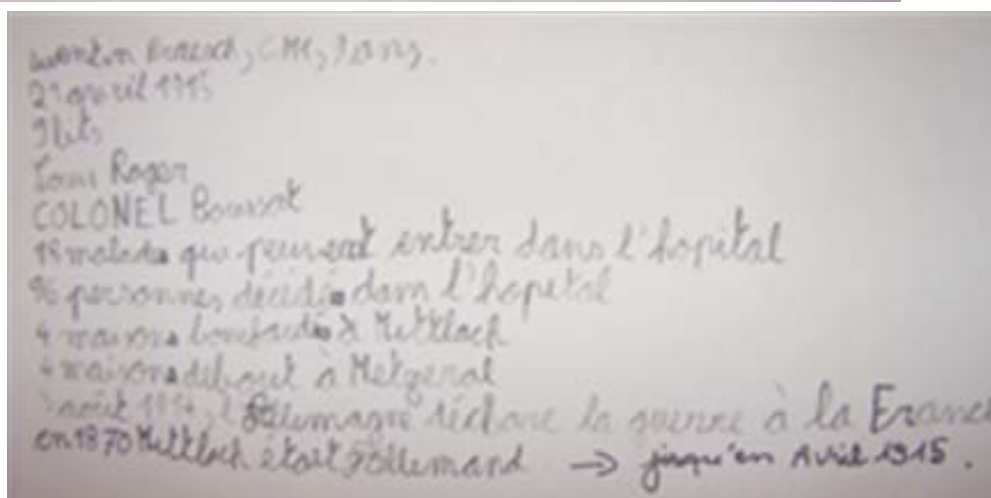 CM1, 9 ans.
avril 1915
9 lits
Roger
COLONEL Boussat
18 malades qui peuvent entrer dans l'hopital
96 personnes décidés dans l'hopital
4 maisons bombardés à Mettlach
4 maisons debout à Metzeral
3 août 1914, l'Allemagne déclare la guerre à la France
en 1870 Mettlach était Allemand → jusqu'en Avril 1915.